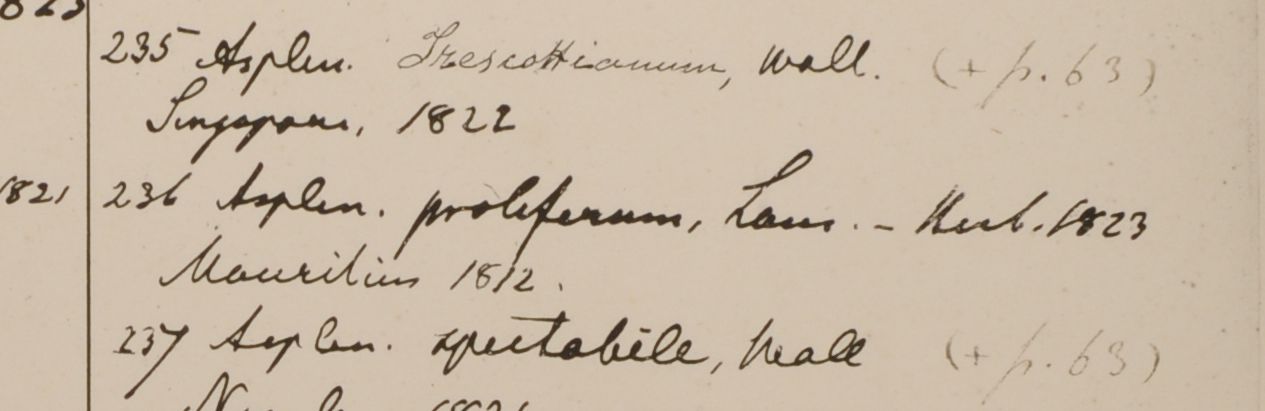 235 Asplen. Trescottianum, Wall. (+ p. 63)
Singapore, 1822
1821 236 Asplen. proliferum, Lam. - Herb. 1823
Mauritius 1812.
237 Asplen. spectabile, Wall (+ p. 63)